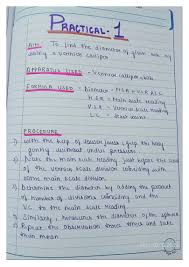 PRACTICAL-1
AIM - To find the diameter of given wire
using a vernier calliper
APPARATUS USED - Vernier calliper, wire
FORMULA USED - Diameter = M.S.R + V.S.R × L.C
M.S.R = Main scale reading
V.S.R = Vernier scale reading
L.C = Least count
PROCEDURE
with the help of lower jaws, grip the body
gently without undue pressure
Note the main scale reading just before the zero
of the vernier scale division coinciding with
some main scale division
Determine the diameter by adding the product
of number of divisions coinciding and the
VC to the main scale reading
Similarly, measure the diameter of the sphere
Repeat the observation three times and take
their mean